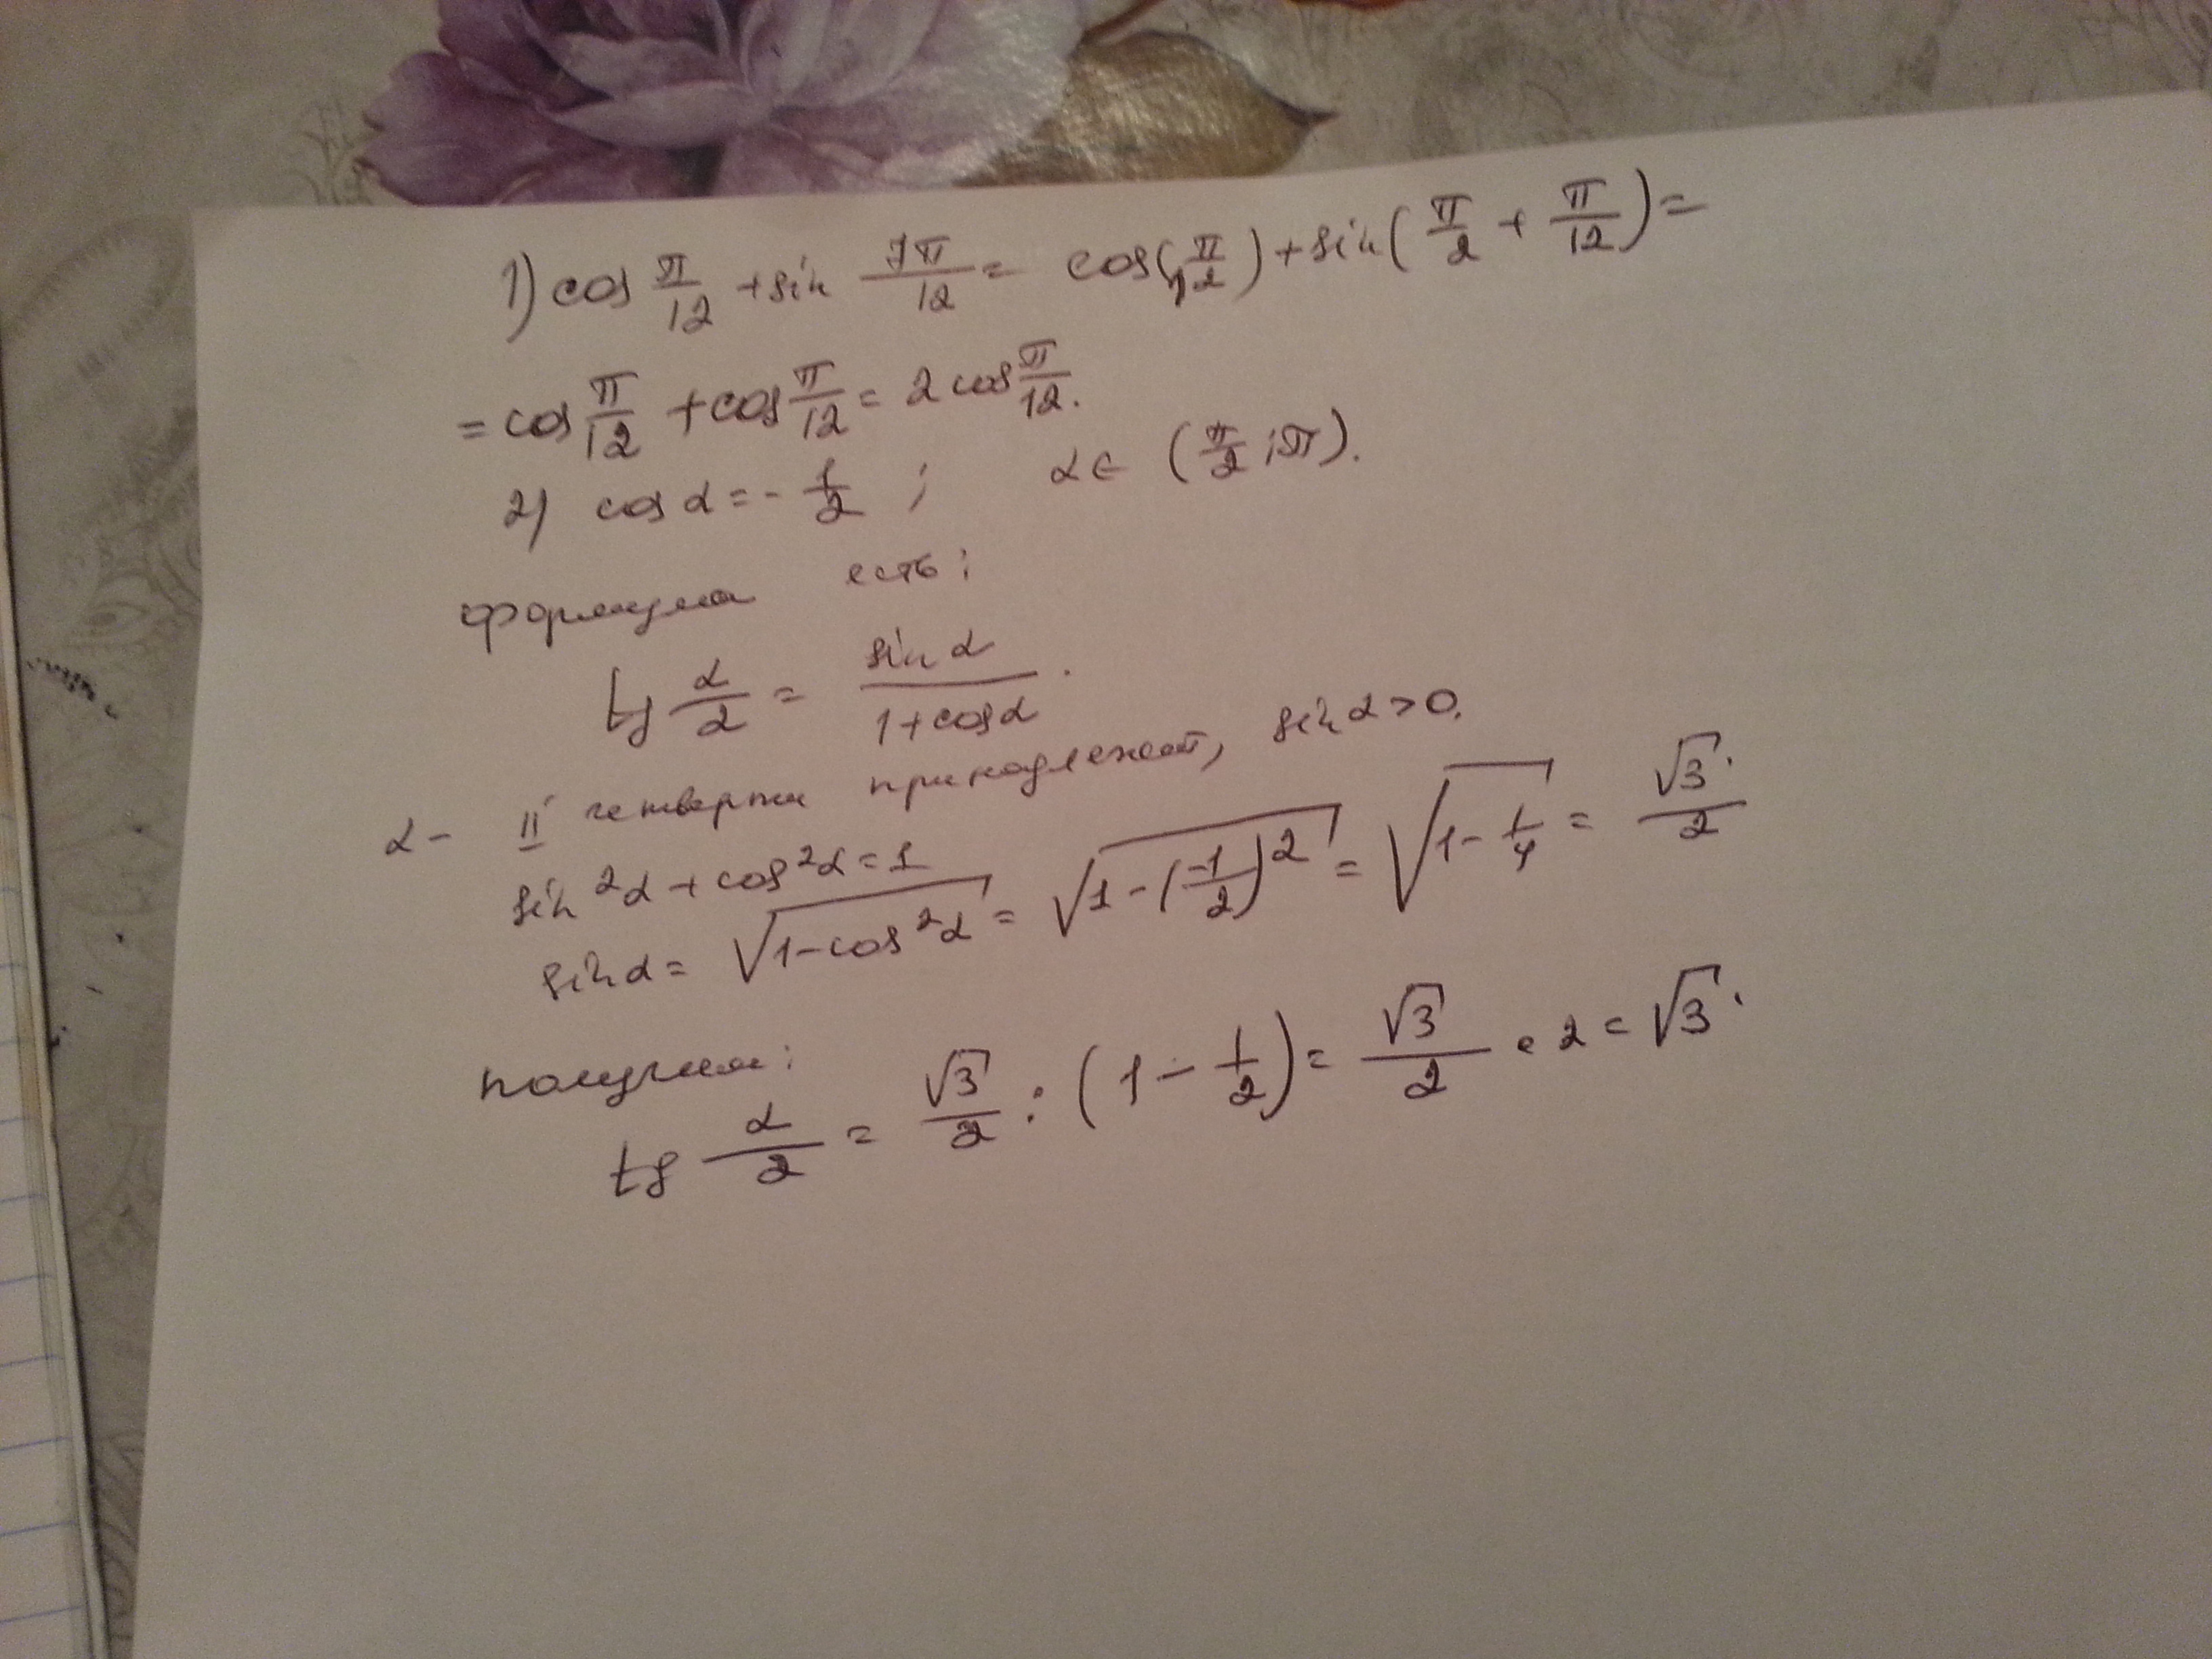 1) cos π/12 + sin 7π/12 = cos(π/12) + sin(π/2 + π/12) =
= cos π/12 + cos π/12 = 2 cos π/12.
2) cos α = - 1/2 ; α ∈ (π/2 ; π).
формула есть:
tg α/2 = sin α / 1 + cos α .
α - II четверти принадлежит, sin α > 0.
sin²α + cos²α = 1
sin α = √(1 - cos²α) = √(1 - (-1/2)²) = √(1 - 1/4) = √3/2.
получим:
tg α/2 = √3/2 : (1 - 1/2) = √3/2 • 2 = √3.